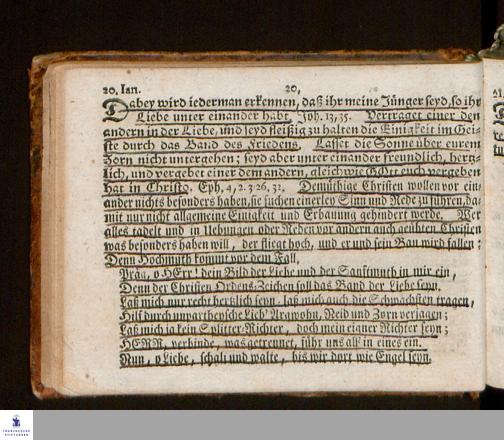 20. Jan. 20.
Dabey wird iederman erkennen, daß ihr meine Jünger seyd, so ihr
Liebe unter einander habt. Joh. 13, 35. Vertraget einer den
andern in der Liebe, und seyd fleißig zu halten die Einigkeit im Gei-
ste durch das Band des Friedens. Lasset die Sonne über eurem
Zorn nicht untergehen; seyd aber unter einander freundlich, hertz-
lich, und vergebet einer dem andern, gleich wie GOtt euch vergeben
hat in Christo. Eph. 4, 2. 3. 26. 32. Demüthige Christen wollen vor ein-
ander nichts besonders haben, sie suchen einerley Sinn und Rede zu führen, da-
mit nur nicht allgemeine Einigkeit und Erbauung gehindert werde. Wer
alles tadelt und in Uebungen oder Reden vor andern auch geübten Christen
was besonders haben will, der fliegt hoch, und er und sein Bau wird fallen:
Denn Hochmuth kommt vor dem Fall.
Präg, o HErr! dein Bild der Liebe und der Sanftmuth in mir ein,
Denn der Christen Ordens-Zeichen soll das Band der Liebe seyn.
Laß mich nur recht hertzlich seyn, laß mich auch die Schwächsten tragen,
Hilf durch unpartheysche Lieb' Argwohn, Neid und Zorn verjagen;
Laß mich ja kein Splitter-Richter, doch mein eigner Richter seyn;
HERR, verbinde, was getrennet, führ uns all' in eines ein.
Nun, o Liebe, schalt und walte, bis wir dort wie Engel seyn.
FRANCKESCHE
STIFTUNGEN